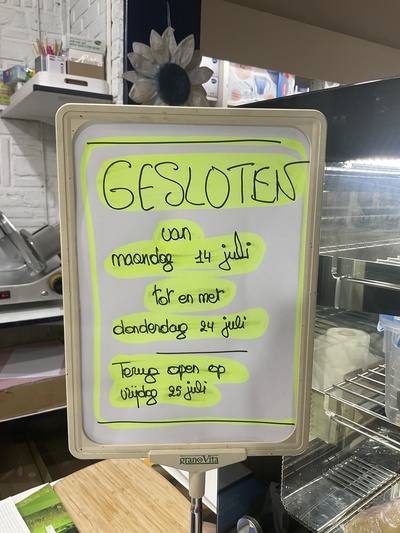 GESLOTEN
van
maandag 14 juli
tot en met
donderdag 24 juli
Terug open op
vrijdag 25 juli
granoVita